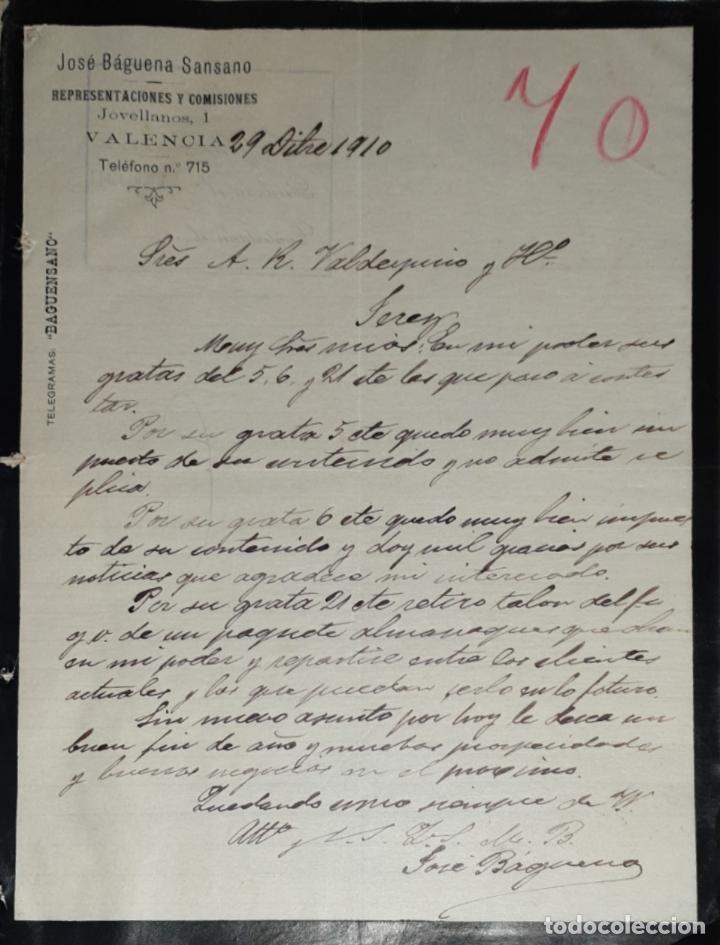 José Báguena Sansano
REPRESENTACIONES Y COMISIONES
Jovellanos, 1
VALENCIA 29 Dibre 1910
Teléfono n.º 715
70
TELEGRAMAS: "BAGUENSANO"
Sres A. R. Valdespino y Hº
Jerez
Muy Sres mios: En mi poder sus
gratas del 5, 6, y 21 cte las que paso á contes
tar.
Por su grata 5 cte quedo muy bien im
puesto de su contenido y no admite re
plica.
Por su grata 6 cte quedo muy bien impues
to de su contenido y doy mil gracias por sus
noticias que agradece mi interesado.
Por su grata 21 cte retiro talon del f.c.
g.v. de un paquete almanaques que obran
en mi poder y repartire entre los clientes
actuales y los que puedan serlo en lo futuro.
Sin nuevo asunto por hoy le desea un
buen fin de año y muchas prosperidades
y buenos negocios en el proximo.
Quedando como siempre de V.
Attº y S. S. Q. S. M. B.
José Báguena
todocoleccion